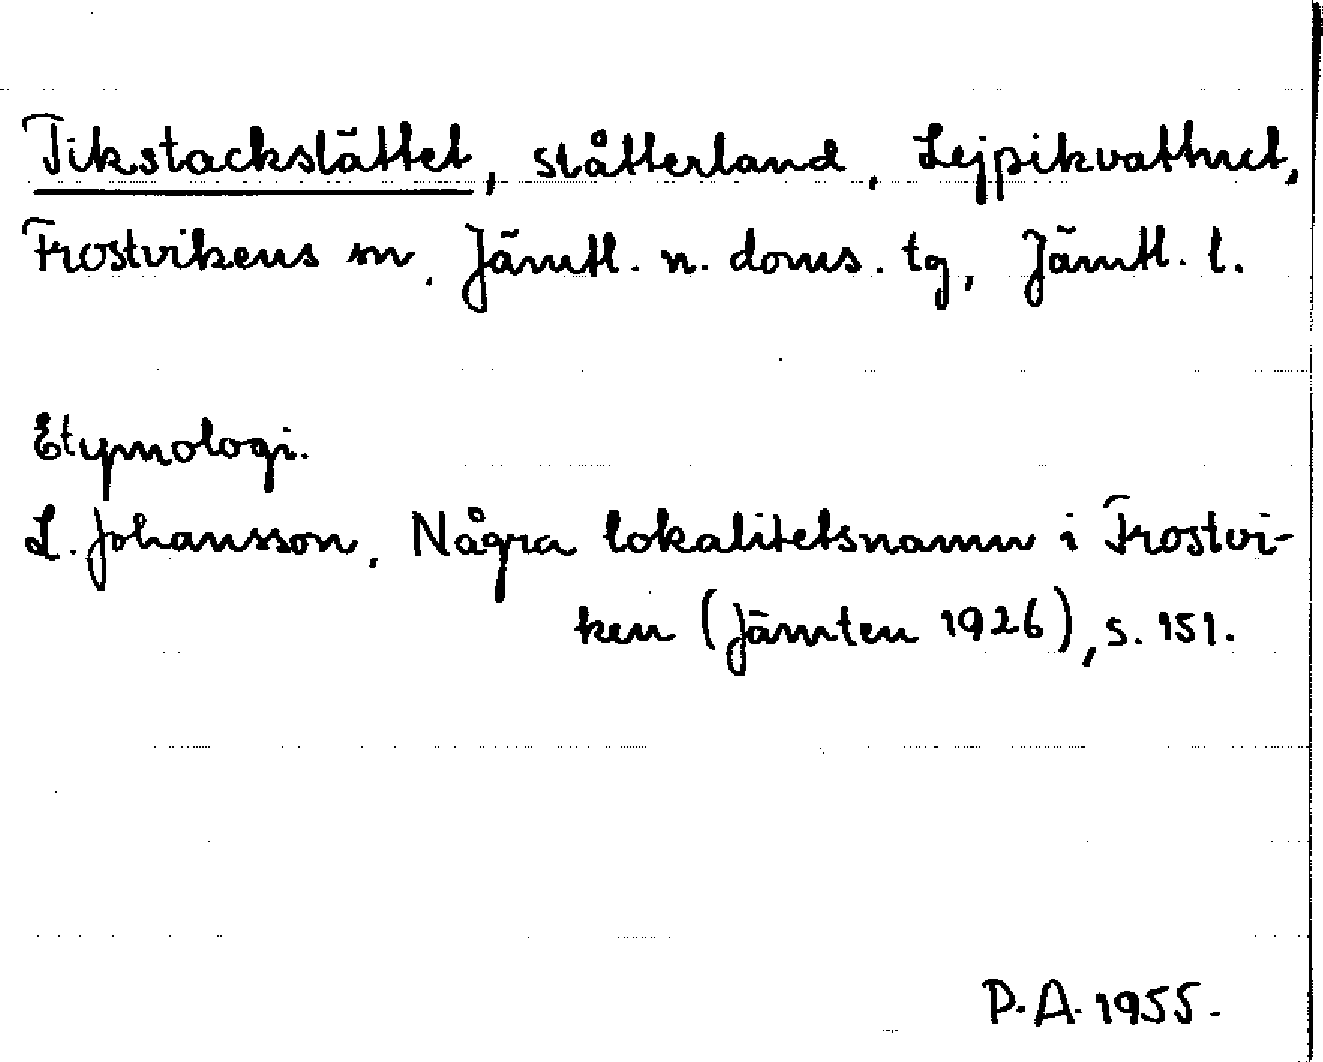 Tikstackslättet, slåtterland, Lejpikvattnet,
Frostvikens sn, Jämtl. n. doms. tg, Jämtl. l.
Etymologi.
L. Johansson, Några lokalitetsnamn i Frostvi-
ken (Jämten 1926), s. 151.
P.A. 1955.